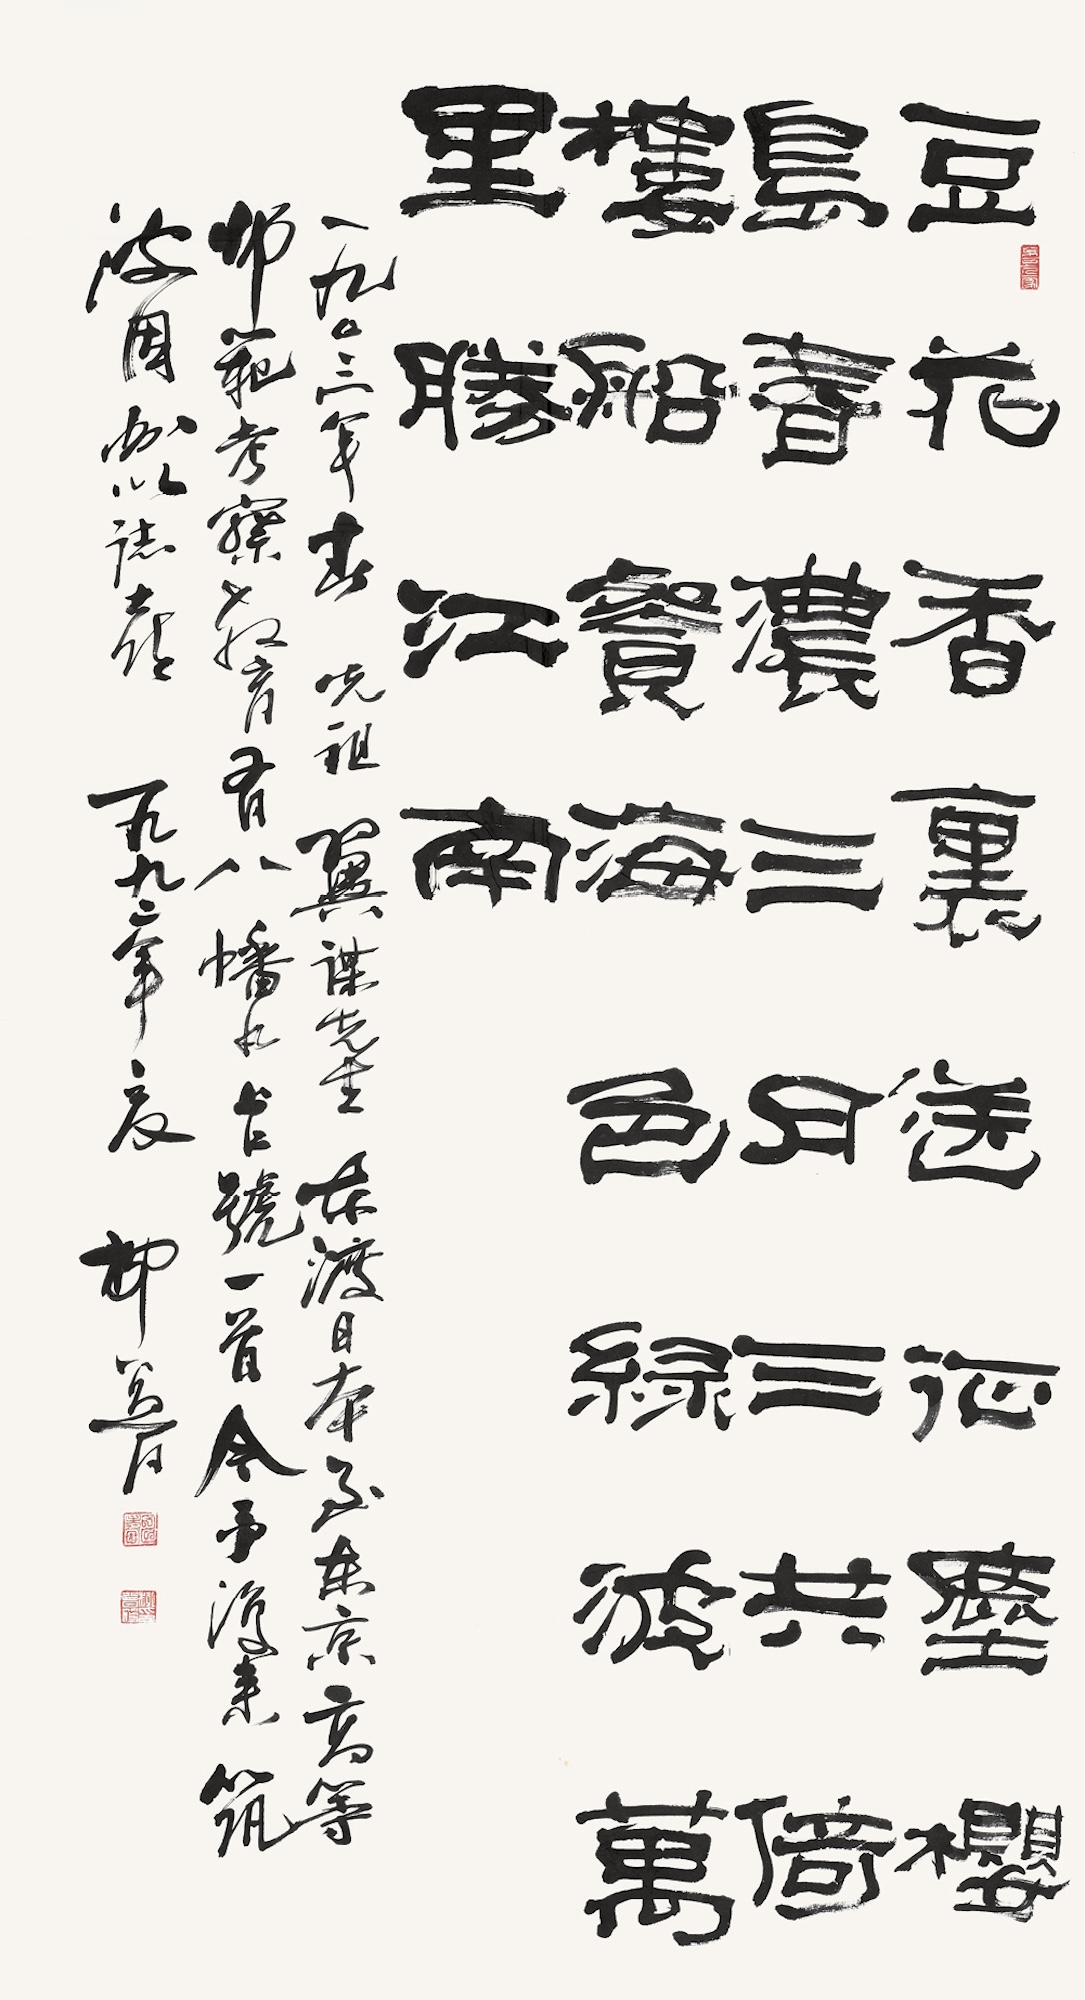 豆花香裏送征塵櫻
島春濃三月三共倚
樓船餐海色綠波萬
里勝江南
一九〇三年春 先祖翼謀先生東渡日本至東京高等
師範考察教育有八幡丸占號一首今予来筑
波因以誌喜 一九九二年夏 柳曾符